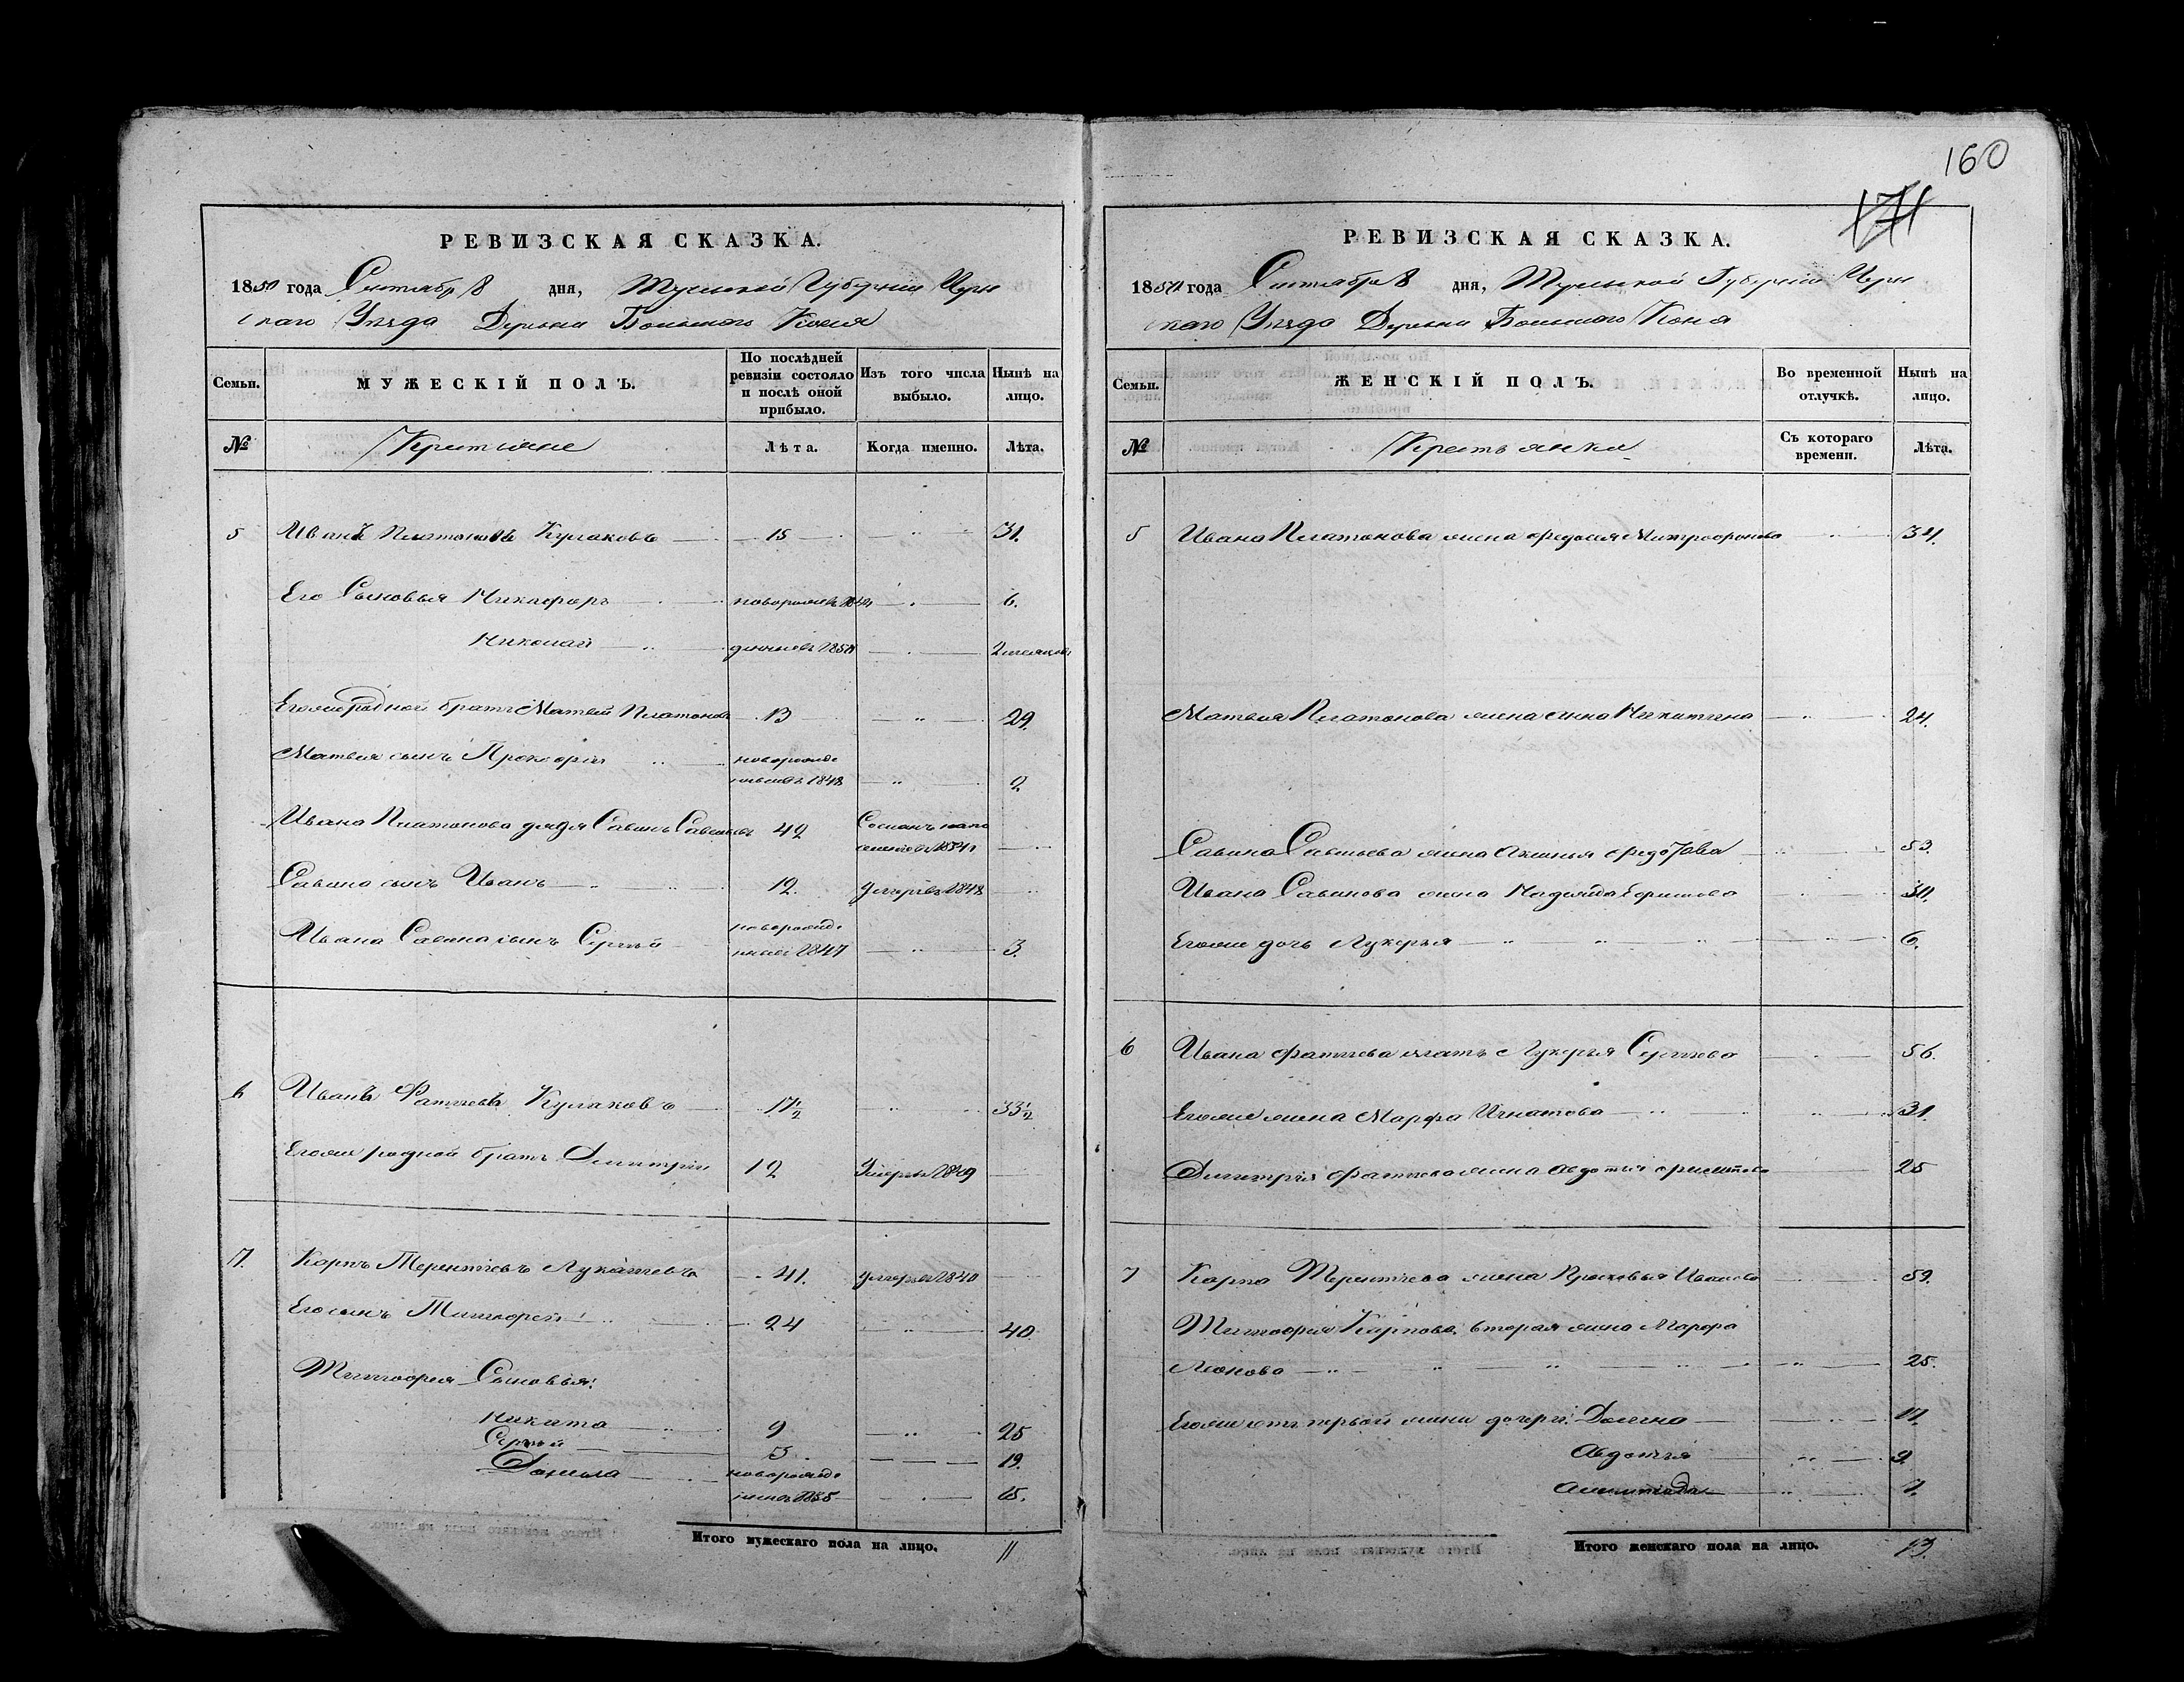 160
171
РЕВИЗСКАЯ СКАЗКА.
1850 года Сентября 8 дня, Тульской Губерніи Черн
скаго Уѣзда Деревни Большого Коня
Семьи.
МУЖЕСКІЙ ПОЛЪ.
По послѣдней ревизіи состояло и послѣ оной прибыло.
Изъ того числа выбыло.
Нынѣ на лицо.
№
Крестьяне
Лѣта.
Когда именно.
Лѣта.
5 Иванъ Платоновъ Кулаковъ 15 31.
Его Сыновья Никафоръ 6.
Николай 2 месяцовъ
Егоже родной братъ Матвей Платоновъ 13 29.
Матвея сынъ Прокофій новорожде
ные въ 1848 2
Ивана Платонова дядя Савинъ 42 Сосланъ напо
Савина сынъ Иванъ 12. умеръ въ 1848
Ивана Савина сынъ Сергей новорожде
ные въ 1847 3.
6 Иванъ Фатѣевъ Кулаковъ 17½ 33½
Егоже родной братъ Дмитрій 12 Умеръ 1849
7. Карпъ Терентіевъ 41. умеръ въ 1840
Его сынъ Тимофей 24 40
Тимофея Сыновья:
Никита 9 25
Сергей 3. 19.
Данила новорожде
1835 15.
Итого мужескаго пола на лицо. 11
РЕВИЗСКАЯ СКАЗКА.
1850 года Сентября 8 дня, Тульской Губерніи Черн
скаго Уѣзда Деревни Большого Коня
Семьи.
ЖЕНСКІЙ ПОЛЪ.
Во временной отлучкѣ.
Нынѣ на лицо.
№
Крестьянки
Съ котораго времени.
Лѣта.
5 Ивана Платонова жена Федосья Митрофонова 34.
Матвея Платонова жена Анна Никитина 24.
Савина Савельева жена Аксинья Федотова 53.
Ивана Савинова жена Надежда Борисова 30.
Егоже дочь Лукерья 6.
6 Ивана Фатѣева мать Лукерья Сергѣева 56.
Егоже жена Марфа Игнатова 31.
Дмитрія Фатѣева жена Авдотья 25
7 Карпа Терентіева жена Прасковья Иванова 59.
Тимофея Карпова вторая жена Марфа
Леонова 25.
Егоже отъ первой жены дочери: 11.
Авдотья 9.
7.
Итого женскаго пола на лицо. 13.